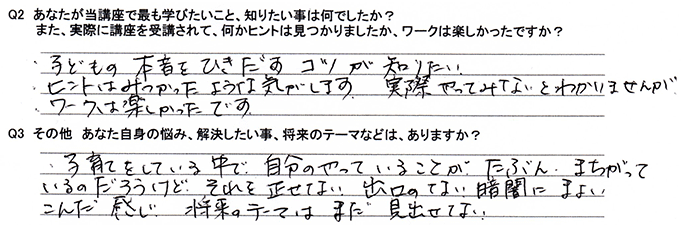 Q2 あなたが当講座で最も学びたいこと、知りたい事は何でしたか？
また、実際に講座を受講されて、何かヒントは見つかりましたか、ワークは楽しかったですか？
・子どもの 本音を ひきだす コツ が 知りたい
・ヒントはみつかったような気がします 実際やってみてないとわかりませんが
・ワークは楽しかったです
Q3 その他 あなた自身の悩み、解決したい事、将来のテーマなどは、ありますか？
・子育てをしている中で 自分のやっていることが たぶん まちがって
いるのだろうけど それを 正せない 出口のてない 暗闇に まよい
こんだ 感じ 将来のテーマは まだ 見出せてない